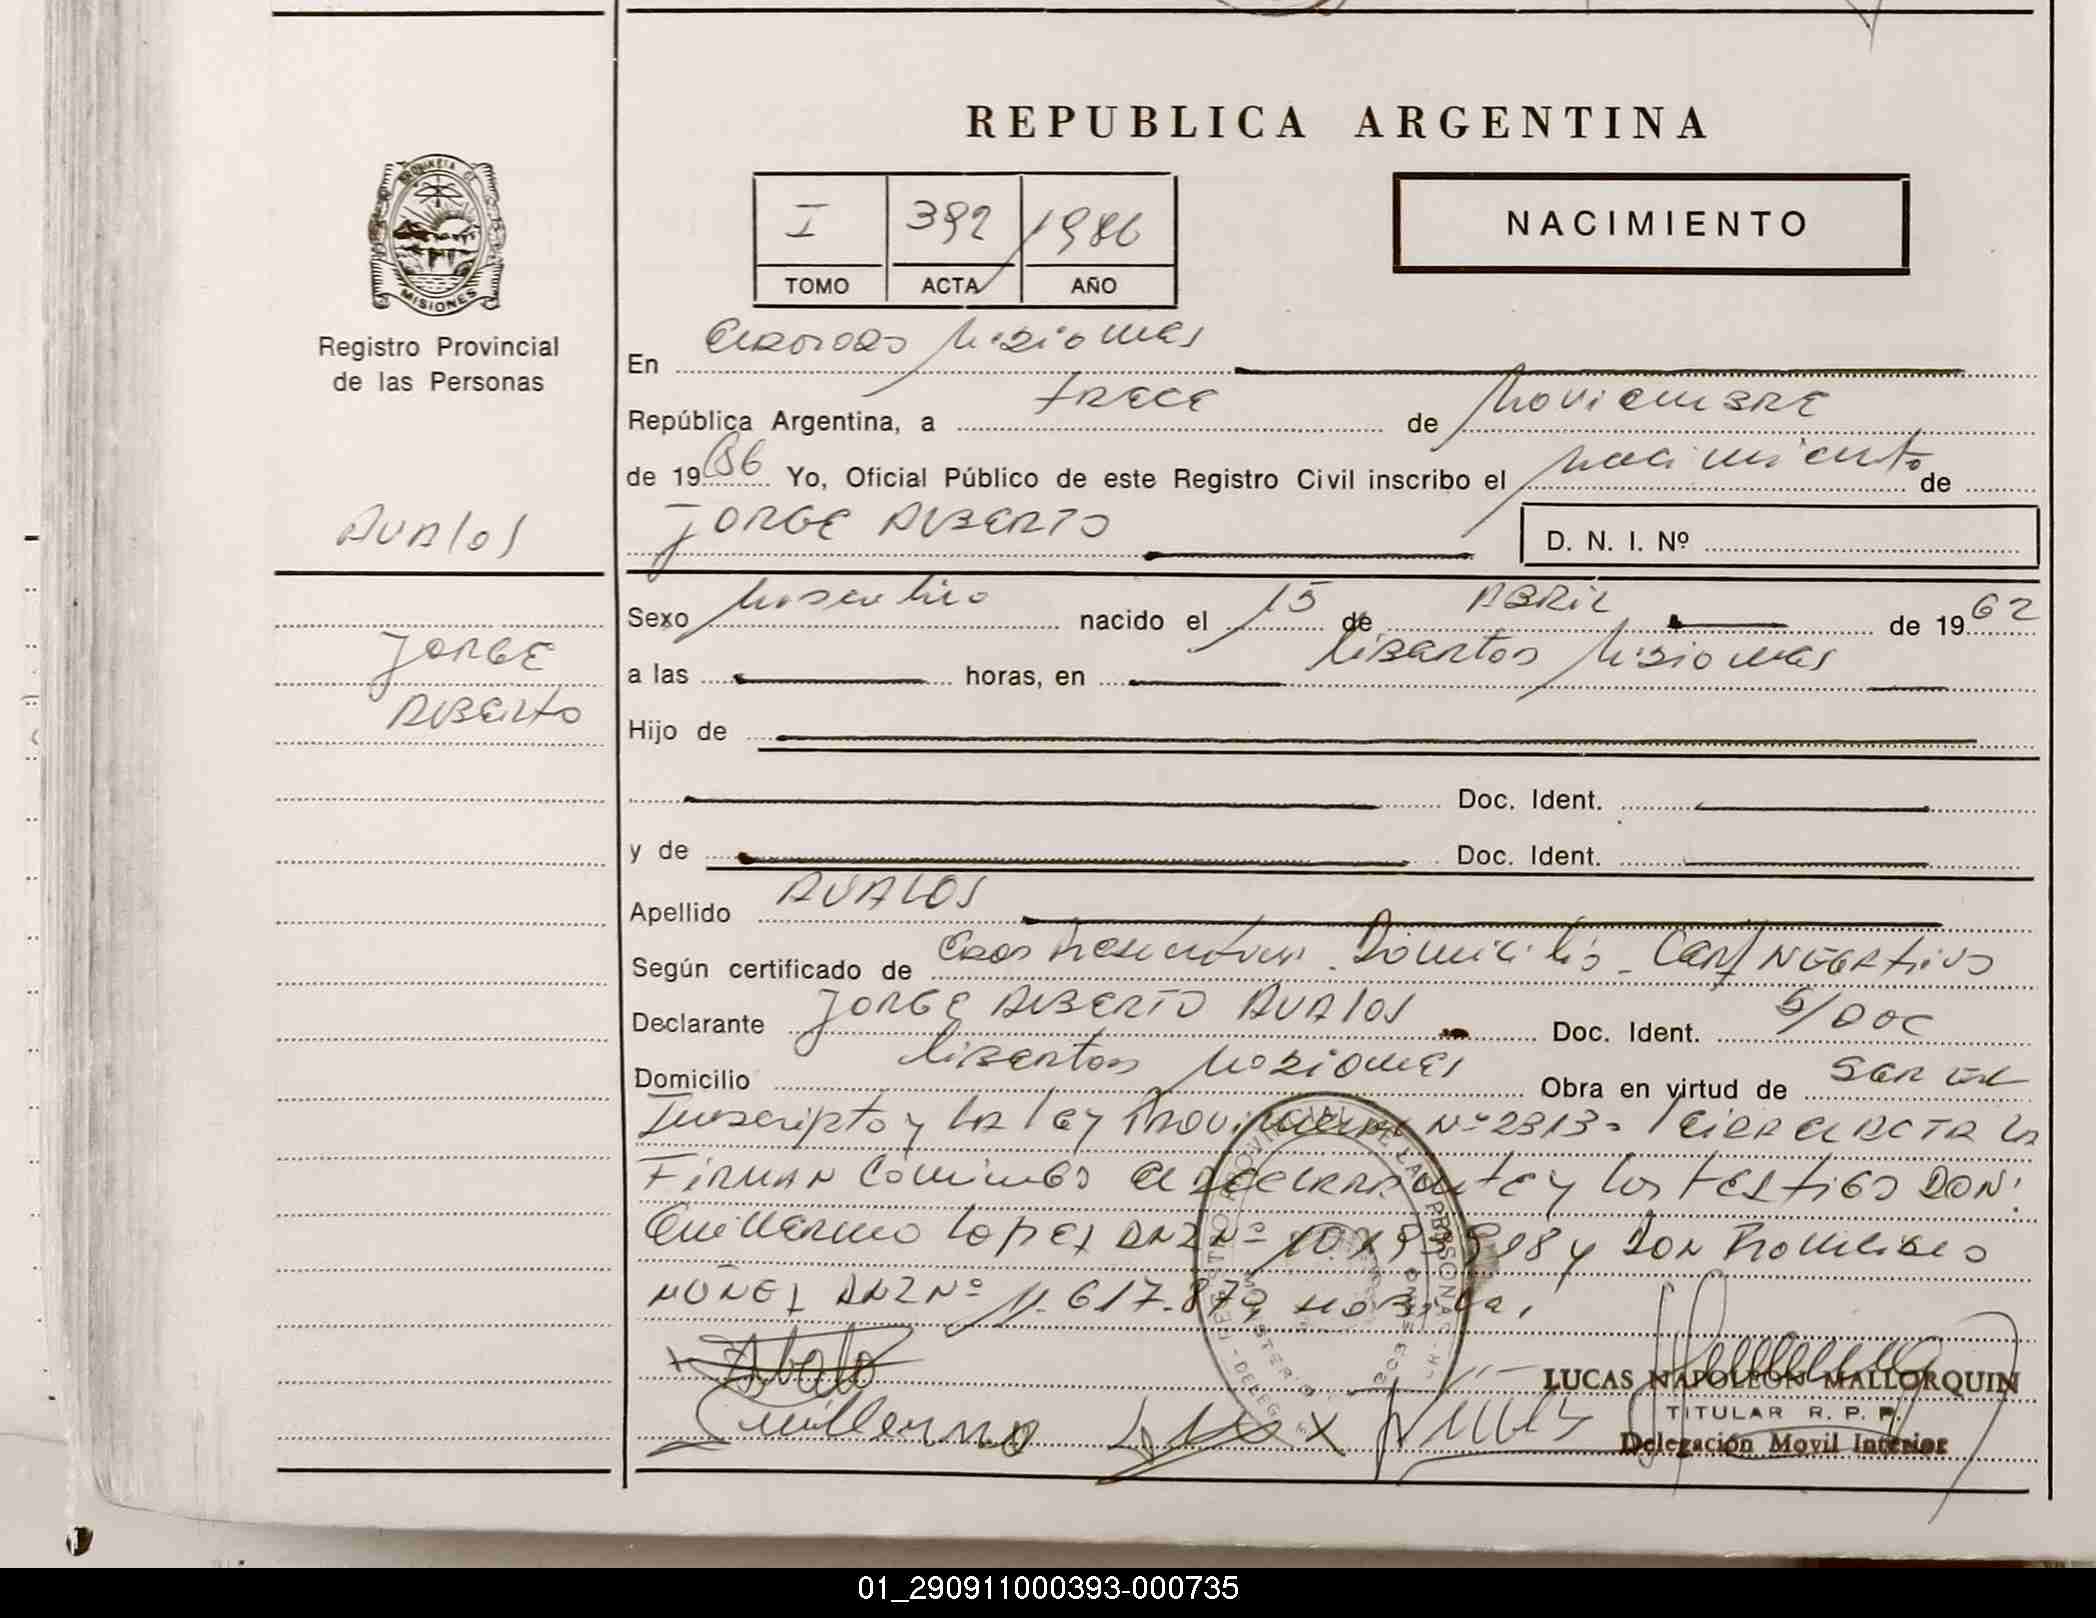 REPUBLICA ARGENTINA
I 392 1986
TOMO ACTA AÑO
NACIMIENTO
PROVINCIA DE
MISIONES
Registro Provincial
de las Personas
AVALOS
JORGE
ALBERTO
En Misiones
República Argentina, a TRECE de Noviembre
de 1986 Yo, Oficial Público de este Registro Civil inscribo el nacimiento de
JORGE ALBERTO D. N. I. Nº
Sexo Masculino nacido el 15 de ABRIL de 1962
a las horas, en Libertad Misiones
Hijo de
Doc. Ident.
y de Doc. Ident.
Apellido AVALOS
Según certificado de Domicilio - Cert NEGATIVO
Declarante JORGE ALBERTO AVALOS Doc. Ident. S/DOC
Domicilio Libertad Misiones Obra en virtud de SER EL
Inscripto y LA ley Provincial Nº 2313 - leida el ACTA la
FIRMAN Conmigo el DECLARANte y los testigos DON:
Guillermo Lopez DNI Nº y DON
NUÑEZ DNI Nº 11.617.879
Guillermo
LUCAS NAPOLEON MALLORQUIN
TITULAR R. P. P.
Delegación Movil Interior
01_290911000393-000735